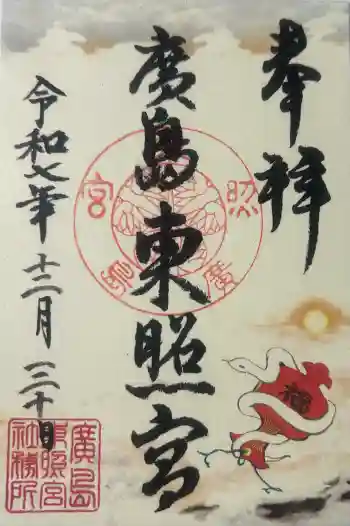 奉拝
廣島東照宮
令和七年十二月三十日
廣島
東照宮
社務所